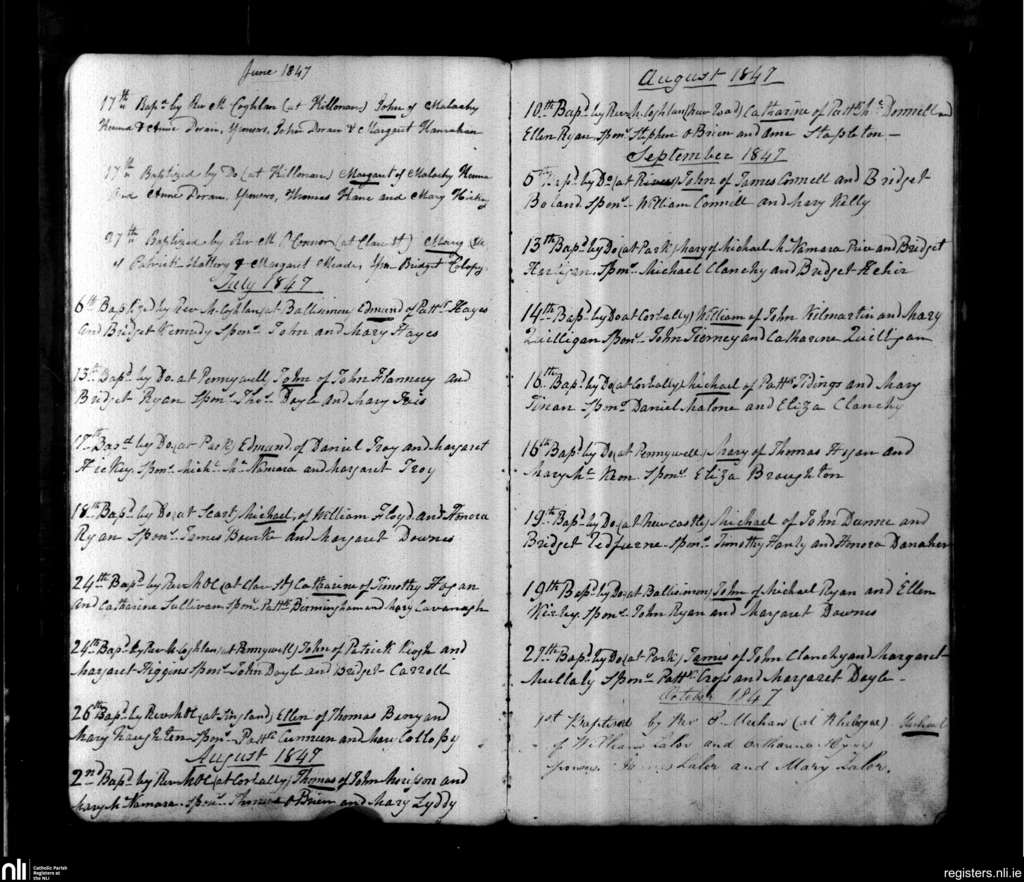 June 1847
17th Bapd by Rev M Coghlan (at Killonan) John of Malachy
Kenna & Anne Doran, Sponsors, John Doran & Margaret Hanrahan
17th Baptized by Do (at Killonan) Margaret of Malachy Kenna
and Anne Doran, Sponsors, Thomas Hane and Mary Hickey
27th Baptized by Rev M O'Connor (at Clare St) Mary
of Patrick Slattery & Margaret Meade, Spon Bridget
July 1847
6th Baptized by Rev M Coghlan (at Ballisimon Edmund of Pattk Hayes
and Bridget Kennedy Sponr John and Mary Hayes
13th Bapd by Do. at Pennywell John of John Flannery and
Bridget Ryan Sponr Thos Doyle and Mary
17th Bapd by Do (at Park) Edmund of Daniel Troy and Margaret
Hickey Sponr Michl Mc Namara and Margaret Troy
18th Bapd by Do (at Scart) Michael, of William Floyd and Honora
Ryan Sponr James Bourke and Margaret Downes
24th Bapd by Rev M OC (at Clare St) Catharine of Timothy Hogan
and Catharine Sullivan Sponr Pattk Birmingham and Mary Cavanagh
24th Bapd by Rev M Coghlan (at Pennywell) John of Patrick Keogh and
Margaret Higgins Sponr John Doyle and Bridget Carroll
26th Bapd by Rev M OC (at Singland) Ellen of Thomas Beny and
Mary Naughten Sponr Pattk Cunneen and Mary
August 1847
2nd Bapd by Rev M OC (at Corbally) Thomas of John and
Mary Mc Namara Sponr Thomas O Brien and Mary Lyddy
August 1847
10th Bapd by Rev M Coghlan (New Road) Catharine of Pattk Mc Donnell and
Ellen Ryan, Sponr Stephen O Brien and Anne Stapleton —
September 1847
5th Bapd by Do (at Rivers) John of James Connell and Bridget
Boland Sponr William Connell and Mary Kelly
13th Bapd by Do (at Park) Mary of Michael Mc Namara Rice and Bridget
Hartigan Sponr Michael Clanchy and Bridget Hehir
14th Bapd by Do at Corbally) William of John Kilmartin and Mary
Quilligan Sponr John Tierney and Catharine Quilligan
16th Bapd by Do (at Corbally) Michael of Pattk Tidings and Mary
Tinan Sponr Daniel Malone and Eliza Clanchy
16th Bapd by Do (at Pennywell) Mary of Thomas Hogan and
Mary Mc Keon Sponr Eliza Broughton
19th Bapd by Do (at Newcastle) Michael of John Dunne and
Bridget Sponr Timothy Hanly and Honora Danaher
19th Bapd by Do (at Ballisimon) John of Michael Ryan and Ellen
Kirby Sponr John Ryan and Margaret Downes
27th Bapd by Do (at Park) James of John Clanchy and Margaret
Mullaly Sponr Pattk Cross and Margaret Doyle —
October 1847
1st Baptized by Rev P Meehan (at Rhebogue)
of William Lalor and Catharine
sponsors James Lalor and Mary Lalor.
nli
Catholic Parish
Registers at
the NLI
registers.nli.ie